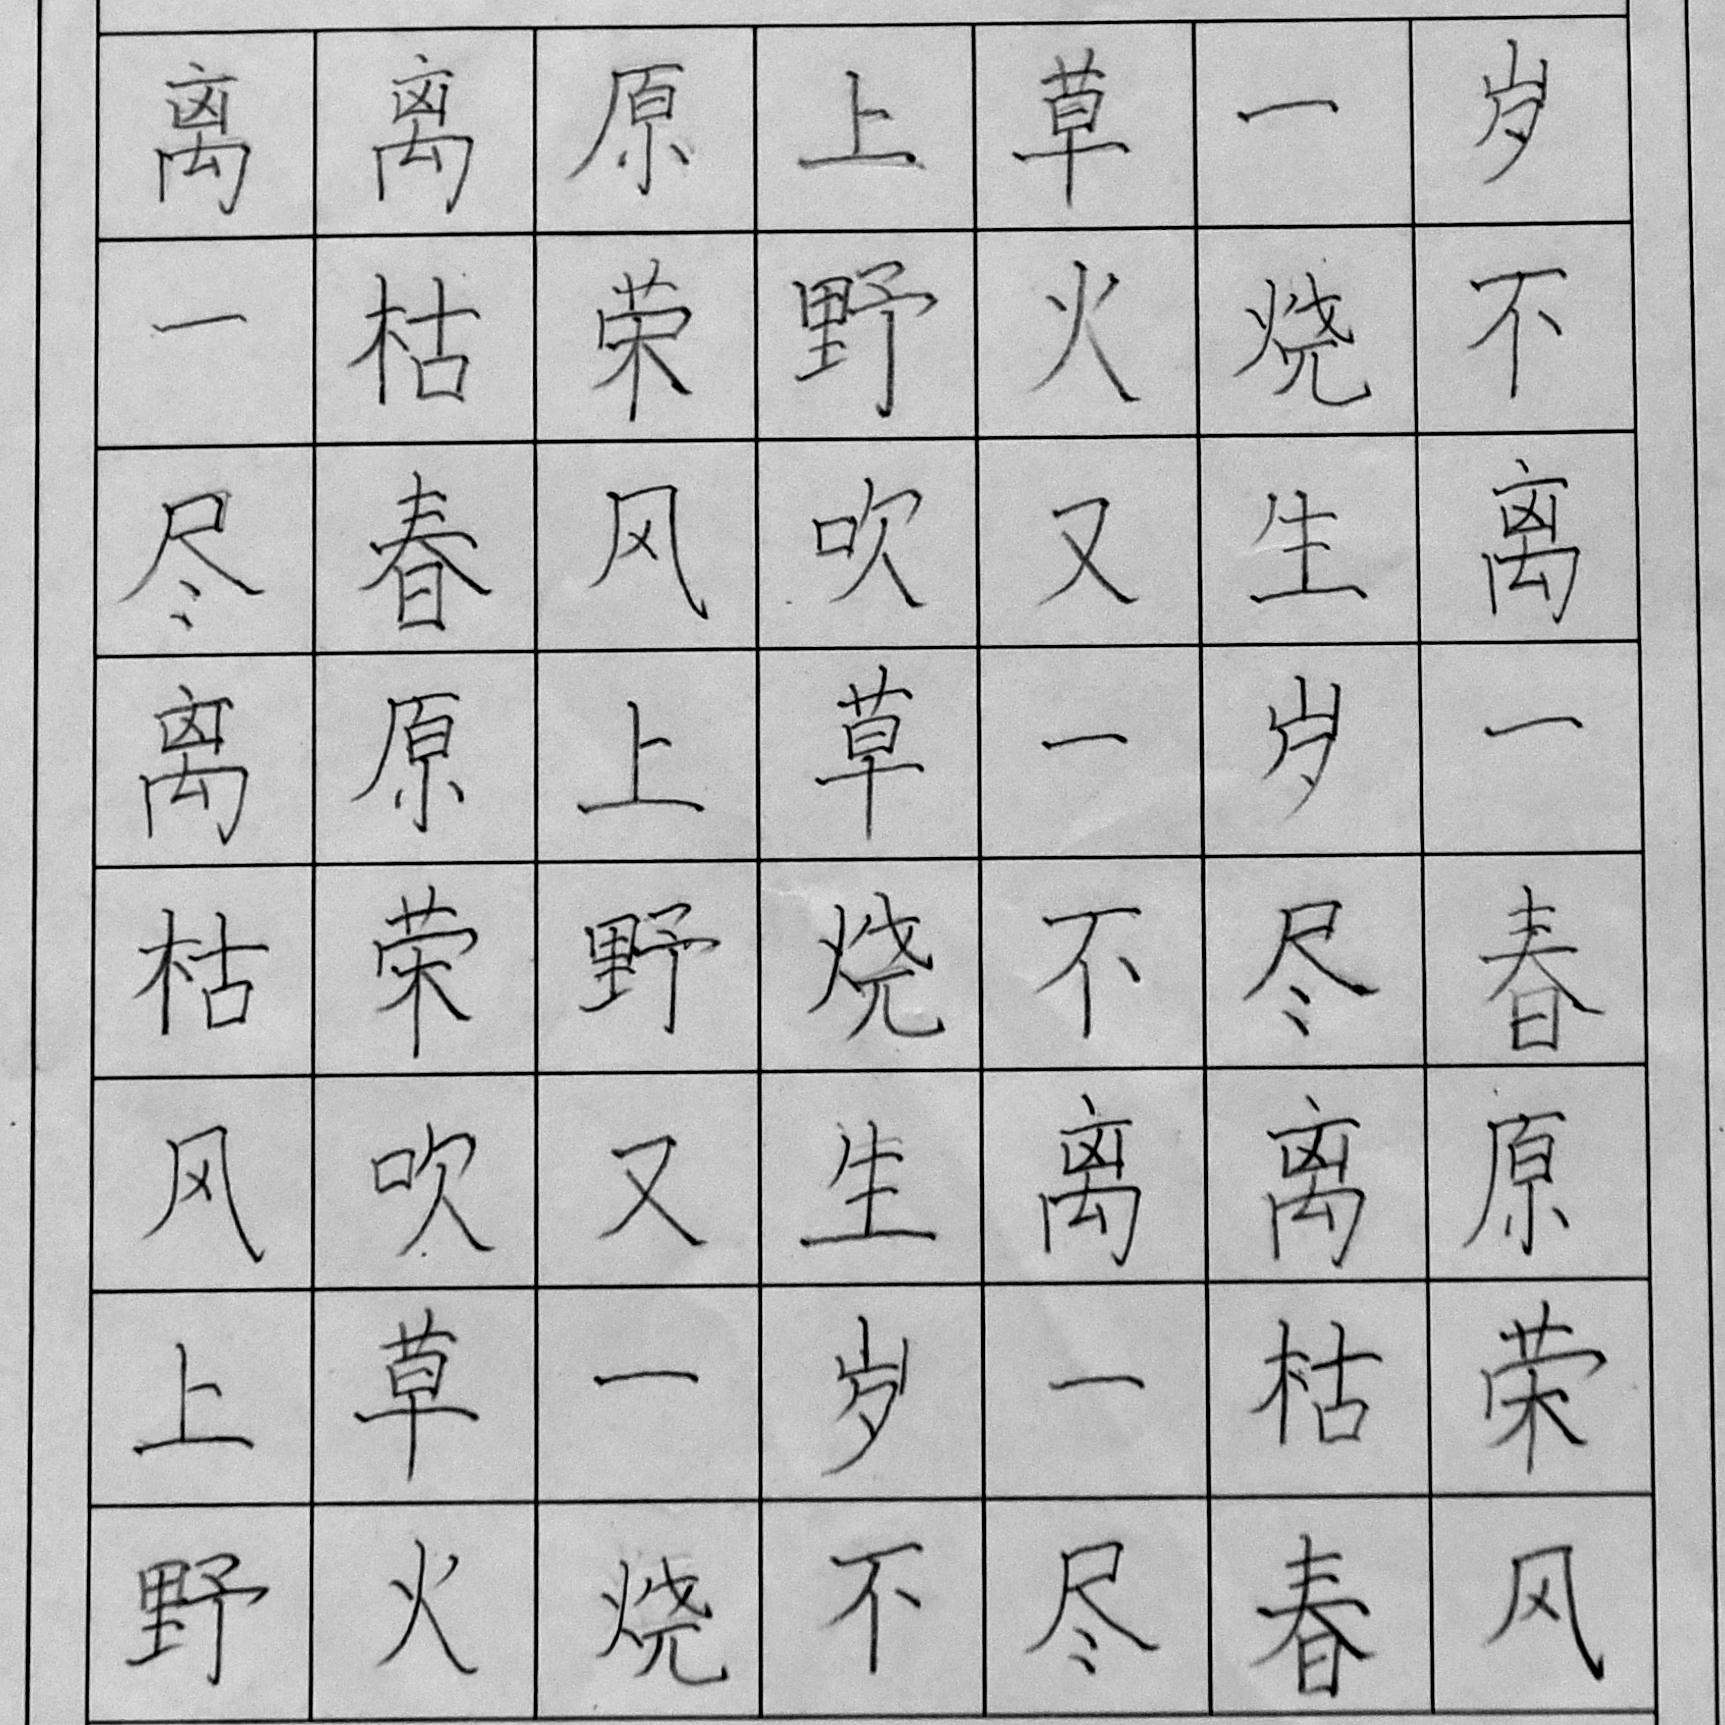 离离原上草一岁
一枯荣野火烧不
尽春风吹又生离
离原上草一岁一
枯荣野烧不尽春
风吹又生离离原
上草一岁一枯荣
野火烧不尽春风